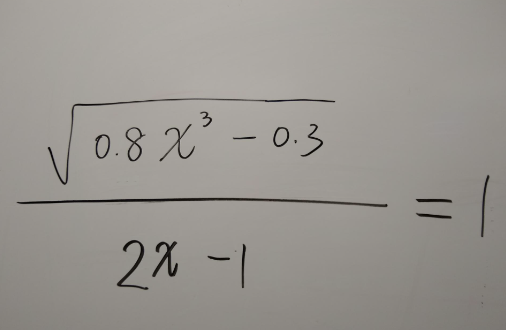 √(0.8x³ − 0.3)
2x − 1
= 1